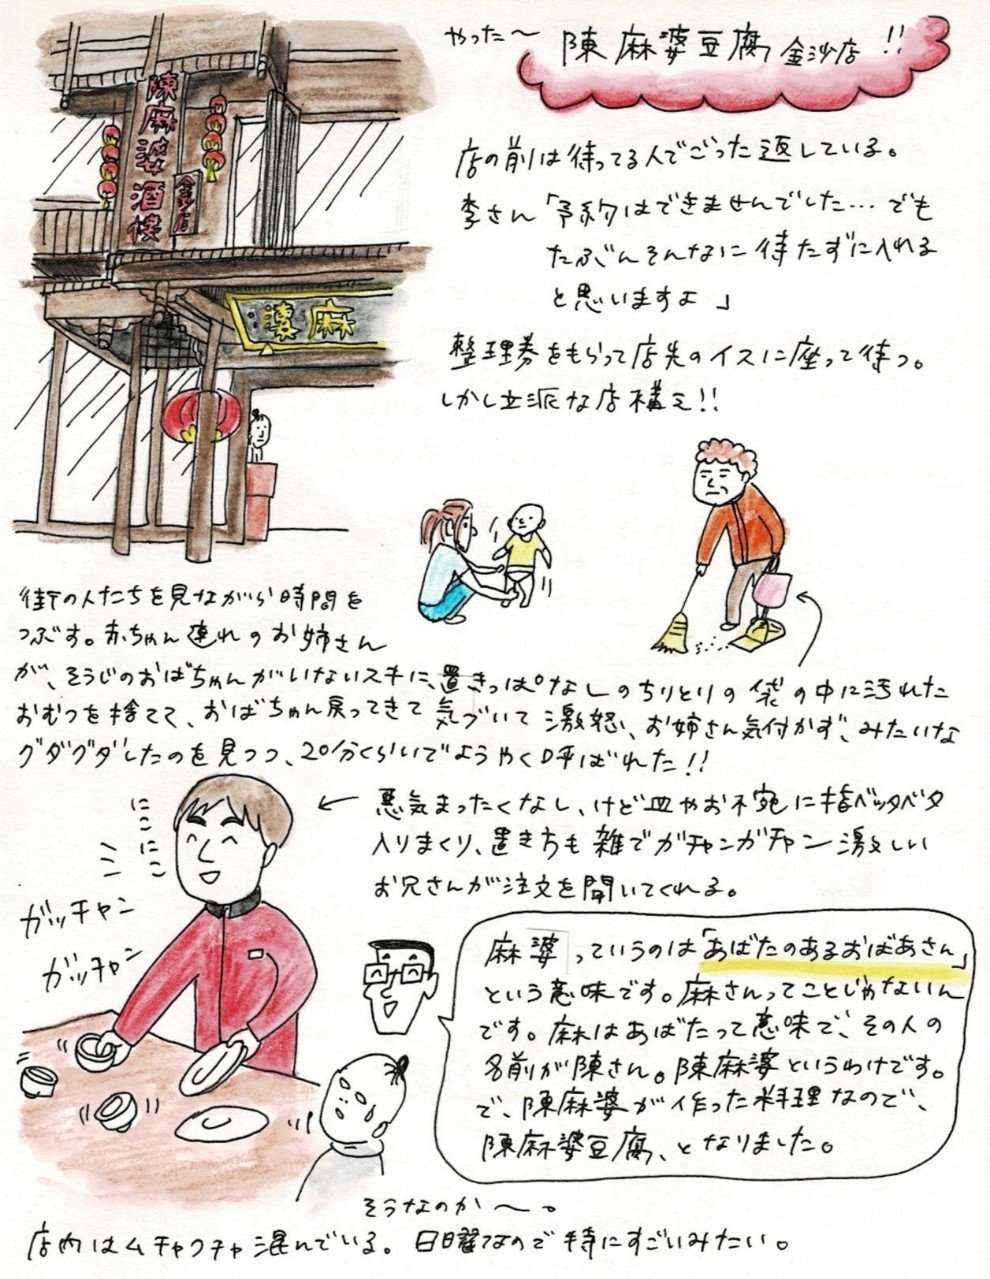 やった〜 陳麻婆豆腐 金沙店 !!
陳麻婆酒樓
金沙店
麻婆
店の前は待ってる人でごった返している。
李さん「予約はできませんでした… でも
たぶんそんなに待たずに入れる
と思いますよ」
整理券をもらって店先のイスに座って待つ。
しかし立派な店構え!!
街の人たちを見ながら時間を
つぶす。赤ちゃん連れのお姉さん
が、そうじのおばちゃんがいないスキに、置きっぱなしのちりとりの袋の中に汚れた
おむつを捨てて、おばちゃん戻ってきて気づいて激怒、お姉さん気付かず、みたいな
グダグダしたのを見つつ、20分くらいでようやく呼ばれた!!
←悪気まったくなし、けど皿やお椀に指ベッタベタ
入りまくり、置き方も雑でガチャンガチャン激しい
お兄さんが注文を聞いてくれる。
にこにこ
ガッチャン
ガッチャン
麻婆っていうのは「あばたのあるおばあさん」
という意味です。麻さんってことじゃないん
です。麻はあばたって意味で、その人の
名前が陳さん。陳麻婆というわけです。
で、陳麻婆が作った料理なので、
陳麻婆豆腐、となりました。
そうなのか〜。
店内はムチャクチャ混んでいる。日曜なので特にすごいみたい。